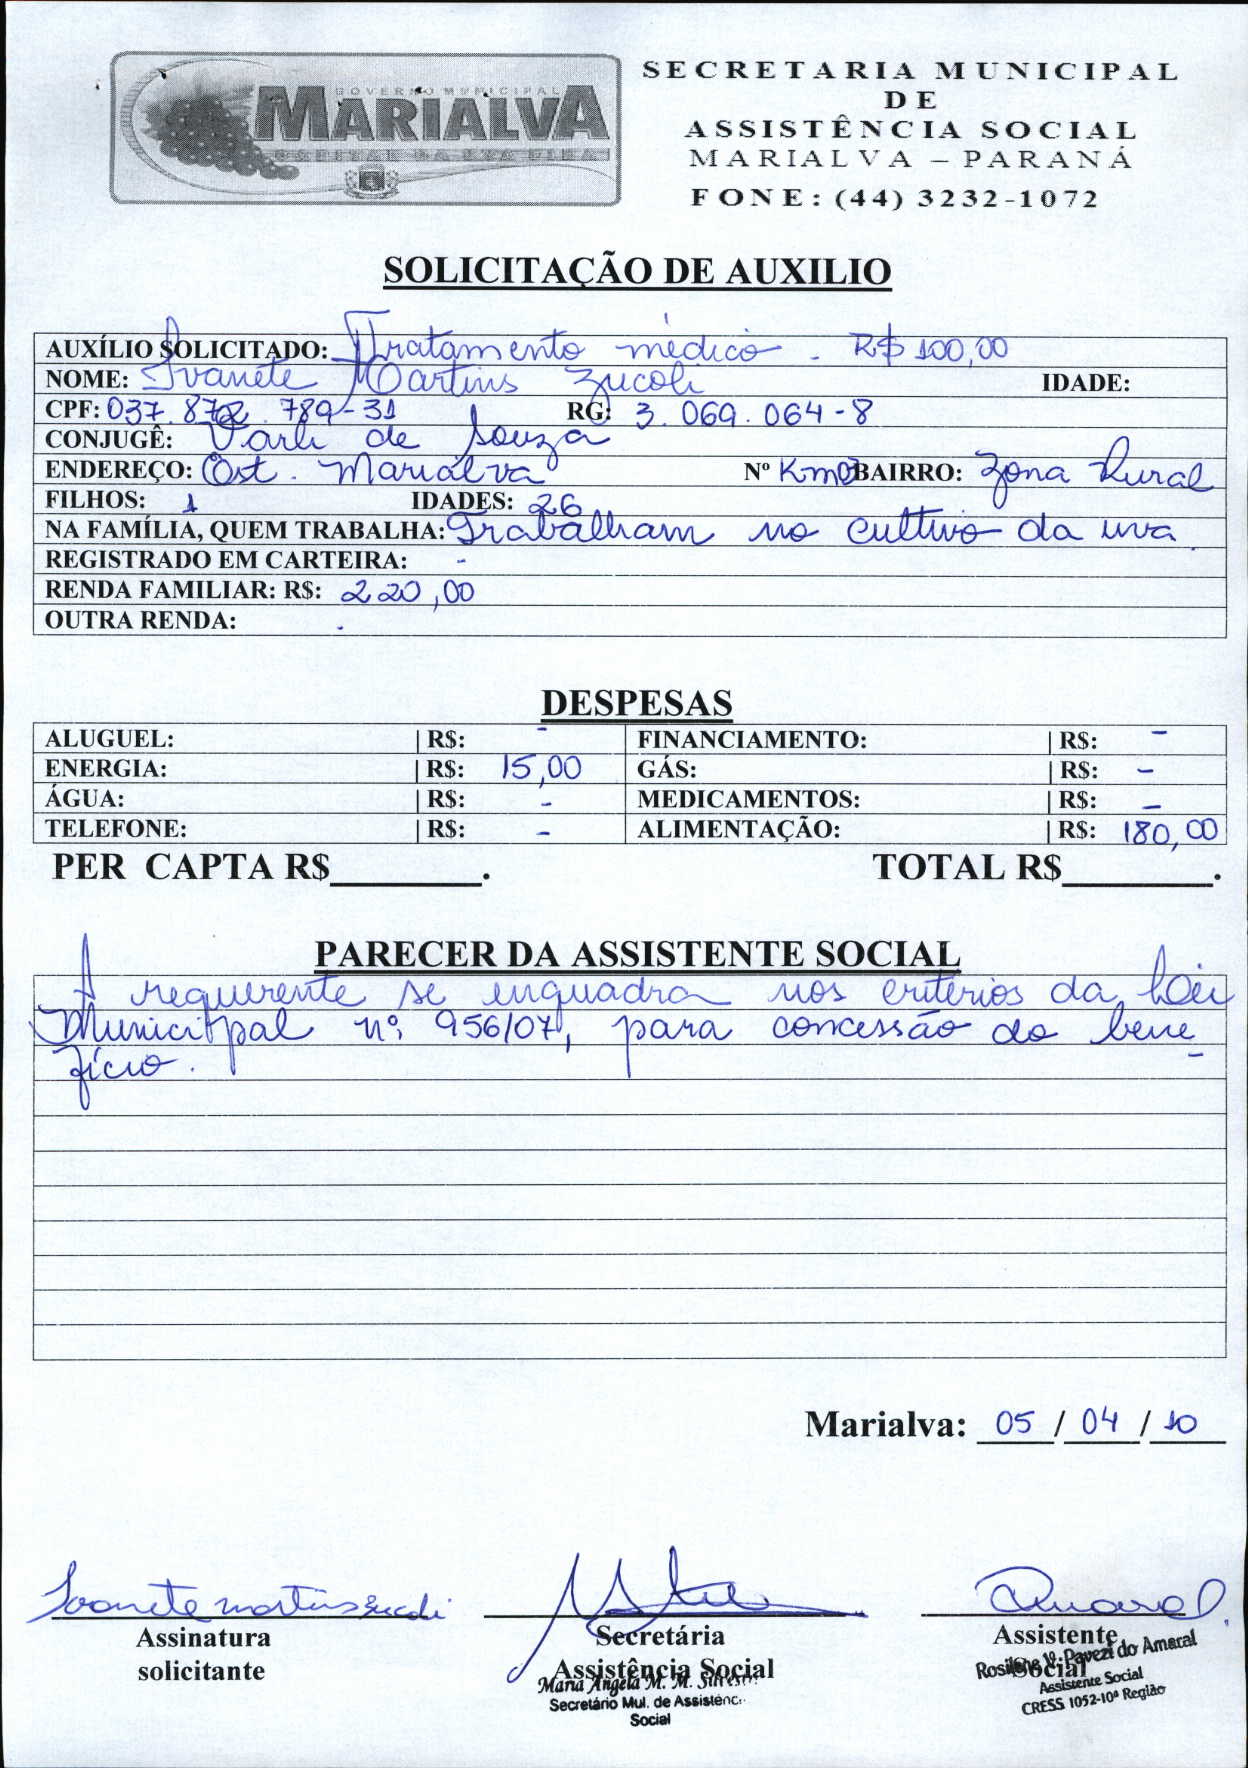 SECRETARIA MUNICIPAL
DE
ASSISTÊNCIA SOCIAL
MARIALVA – PARANÁ
FONE: (44) 3232-1072
GOVERNO MUNICIPAL
MARIALVA
CAPITAL DA UVA FINA
SOLICITAÇÃO DE AUXILIO
AUXÍLIO SOLICITADO: Tratamento médico - R$ 100,00
NOME: Ivanete Martins Zucoli IDADE:
CPF: 037.872.789-31 RG: 3.069.064-8
CONJUGÊ: Varli de Souza
ENDEREÇO: Est. Marialva Nº Km 03 BAIRRO: Zona Rural
FILHOS: 1 IDADES: 26
NA FAMÍLIA, QUEM TRABALHA: Trabalham no cultivo da uva
REGISTRADO EM CARTEIRA: -
RENDA FAMILIAR: R$: 220,00
OUTRA RENDA: -
DESPESAS
ALUGUEL: | R$: - FINANCIAMENTO: | R$: -
ENERGIA: | R$: 15,00 GÁS: | R$: -
ÁGUA: | R$: - MEDICAMENTOS: | R$: -
TELEFONE: | R$: - ALIMENTAÇÃO: | R$: 180,00
PER CAPTA R$________. TOTAL R$________.
PARECER DA ASSISTENTE SOCIAL
A requerente se enquadra nos critérios da Lei
Municipal nº 956/07, para concessão do bene
fício.
Marialva: 05 / 04 / 10
Ivanete martins zucoli
Assinatura
solicitante
Secretária
Assistência Social
Maria Angela M. M. Silvestri
Secretário Mul. de Assistênc
Social
Amaral
Assistente
Social
Rosilene V. Pavezi do Amaral
Assistente Social
CRESS 1052-10ª Região